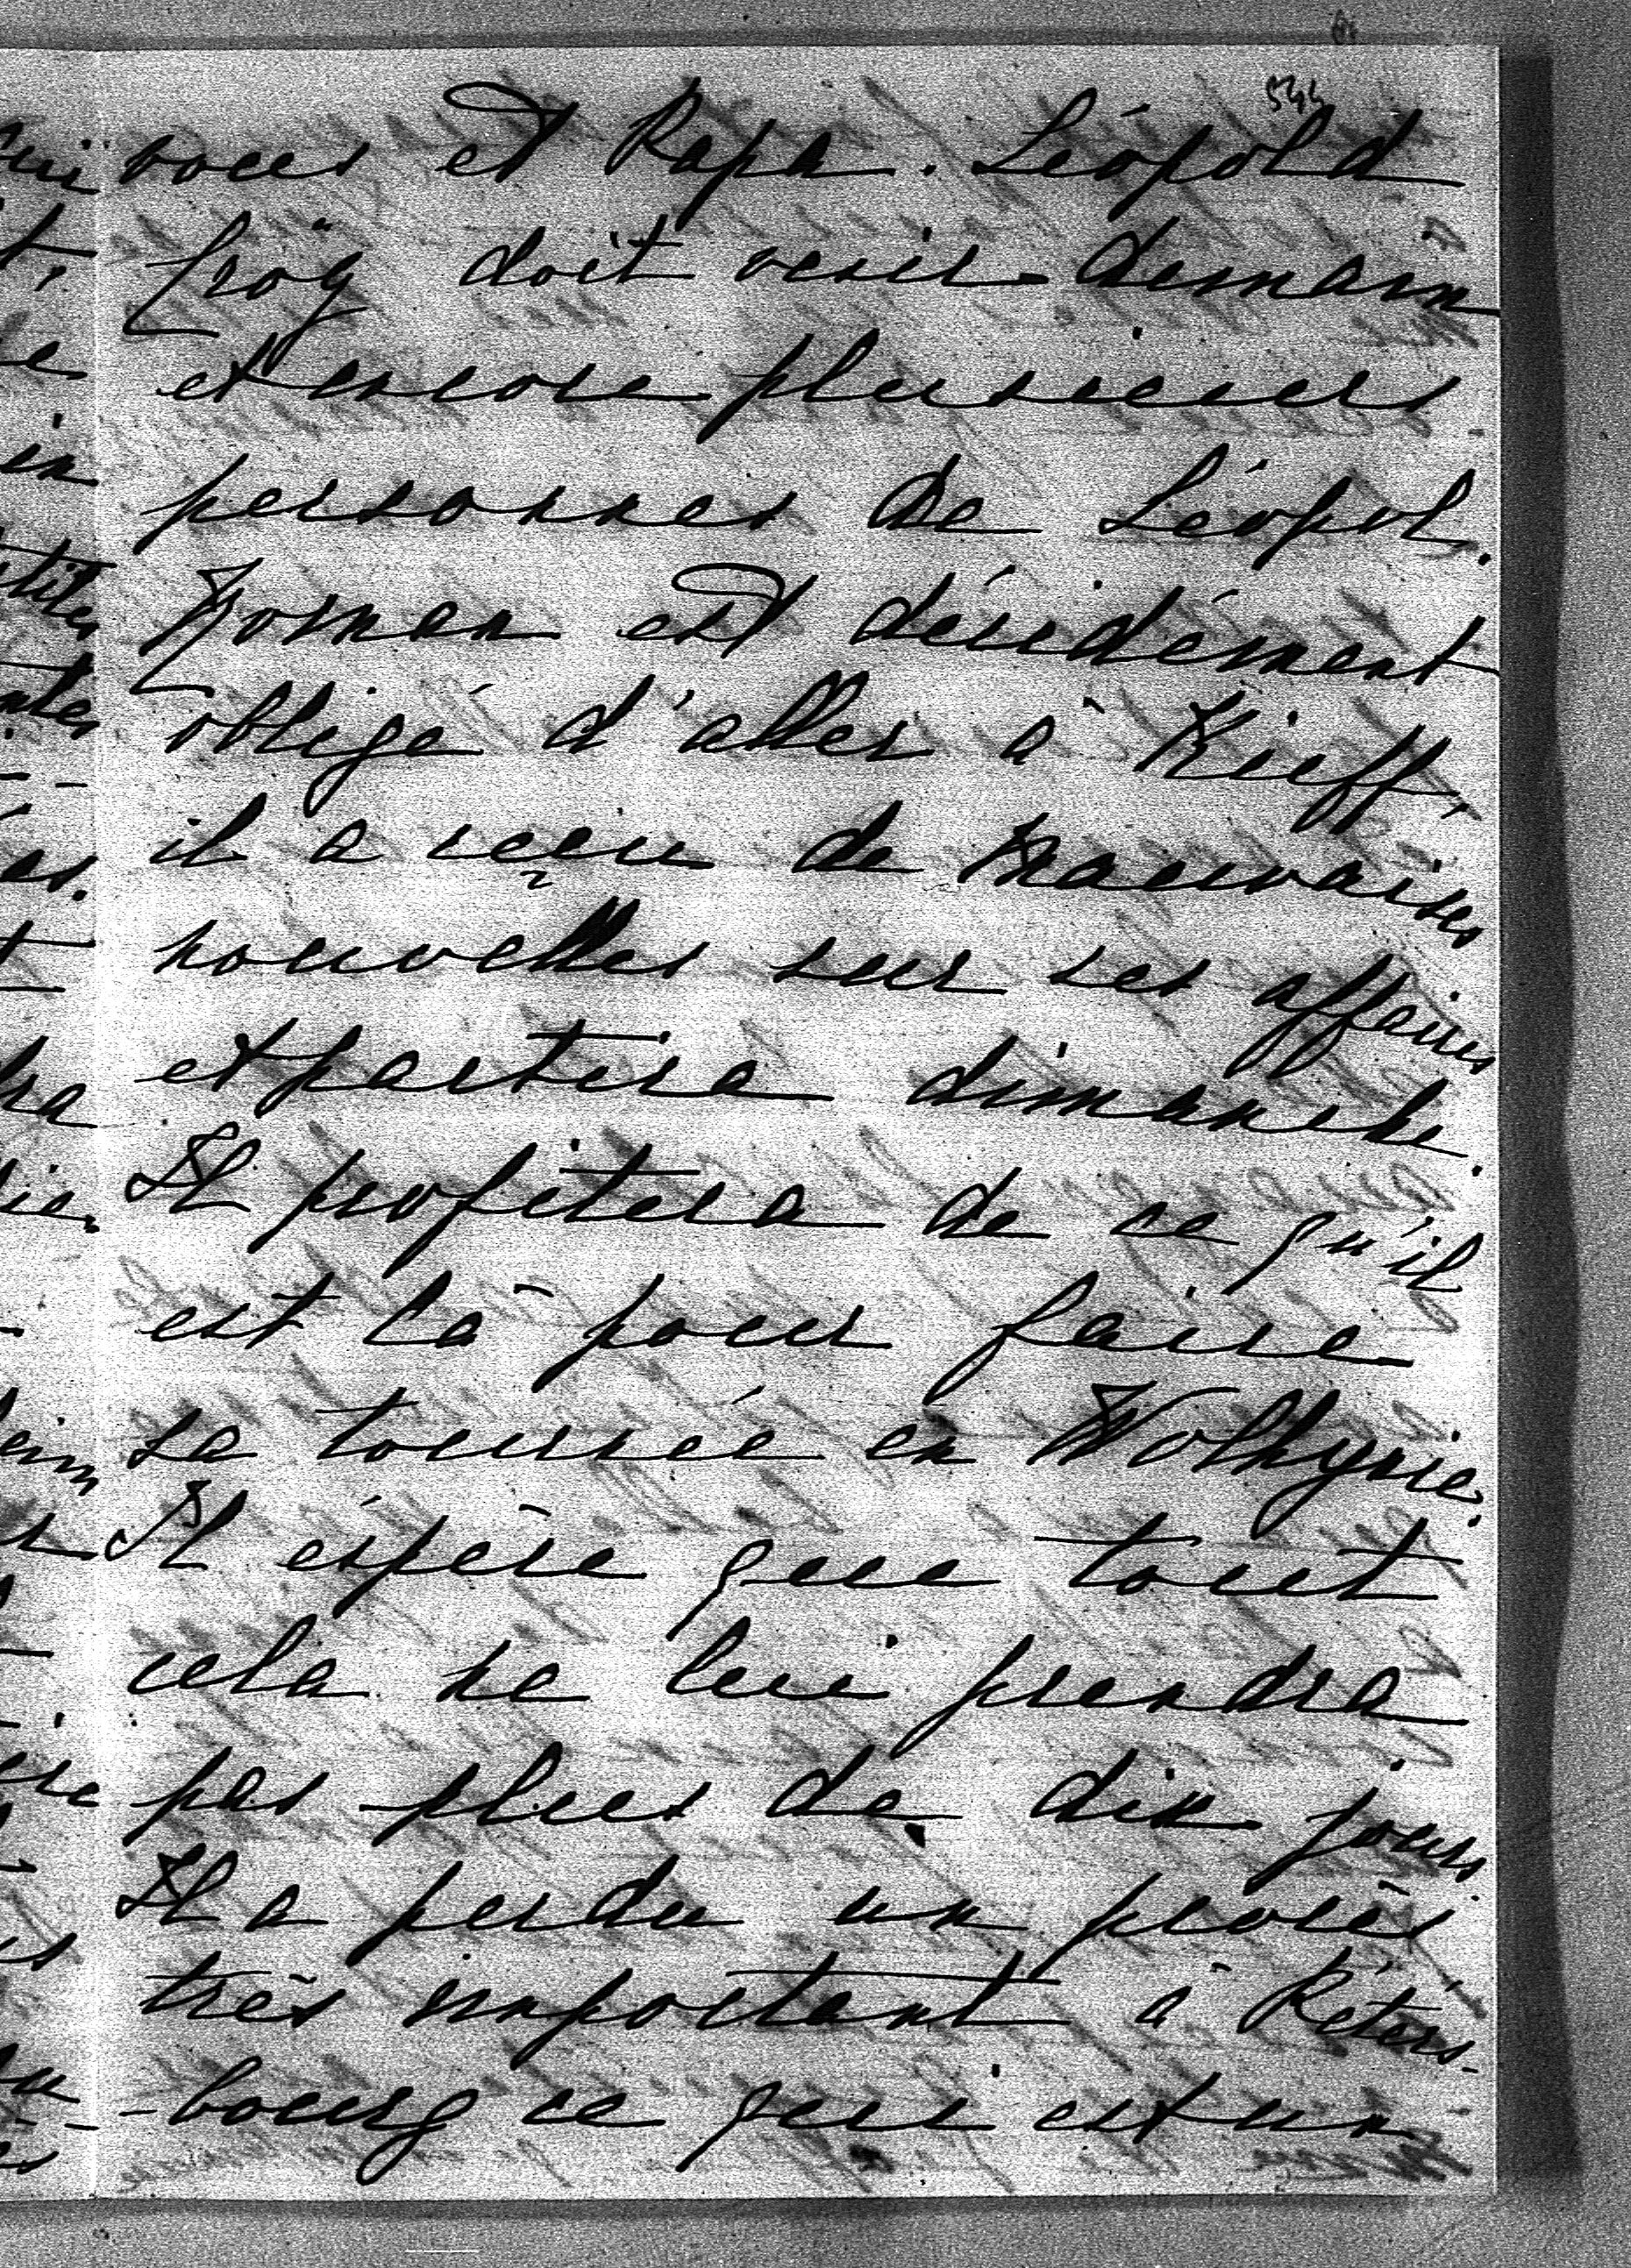 544
vous et Papa. Léopold
doit venir demain
et encore plusieurs
personnes de Léopol.
Roman est décidément
obligé d'aller à Kieff,
il a reçu de mauvaises
nouvelles sur ses affaires
et partira dimanche.
Il profitera de ce qu'il
est là pour faire
sa tournée en Wolhynie.
Il éspère que tout
cela ne lui prendra
pas plus de dix jours.
Il a perdu un procès
très important à Péters-
-bourg ce qui est un